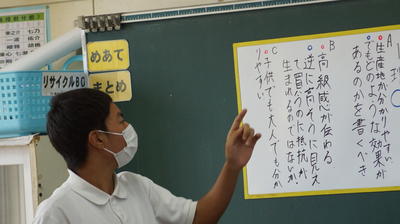 A
・生産地が分かりやすい
・でもどのような効果が
あるのかを書くべき
B
・高級感が伝わる
・逆に高そうに見え
て買うのに抵抗が
生まれるのではないか
C
・子供でも大人でも分か
りやすい
めあて
まとめ
リサイクルBO